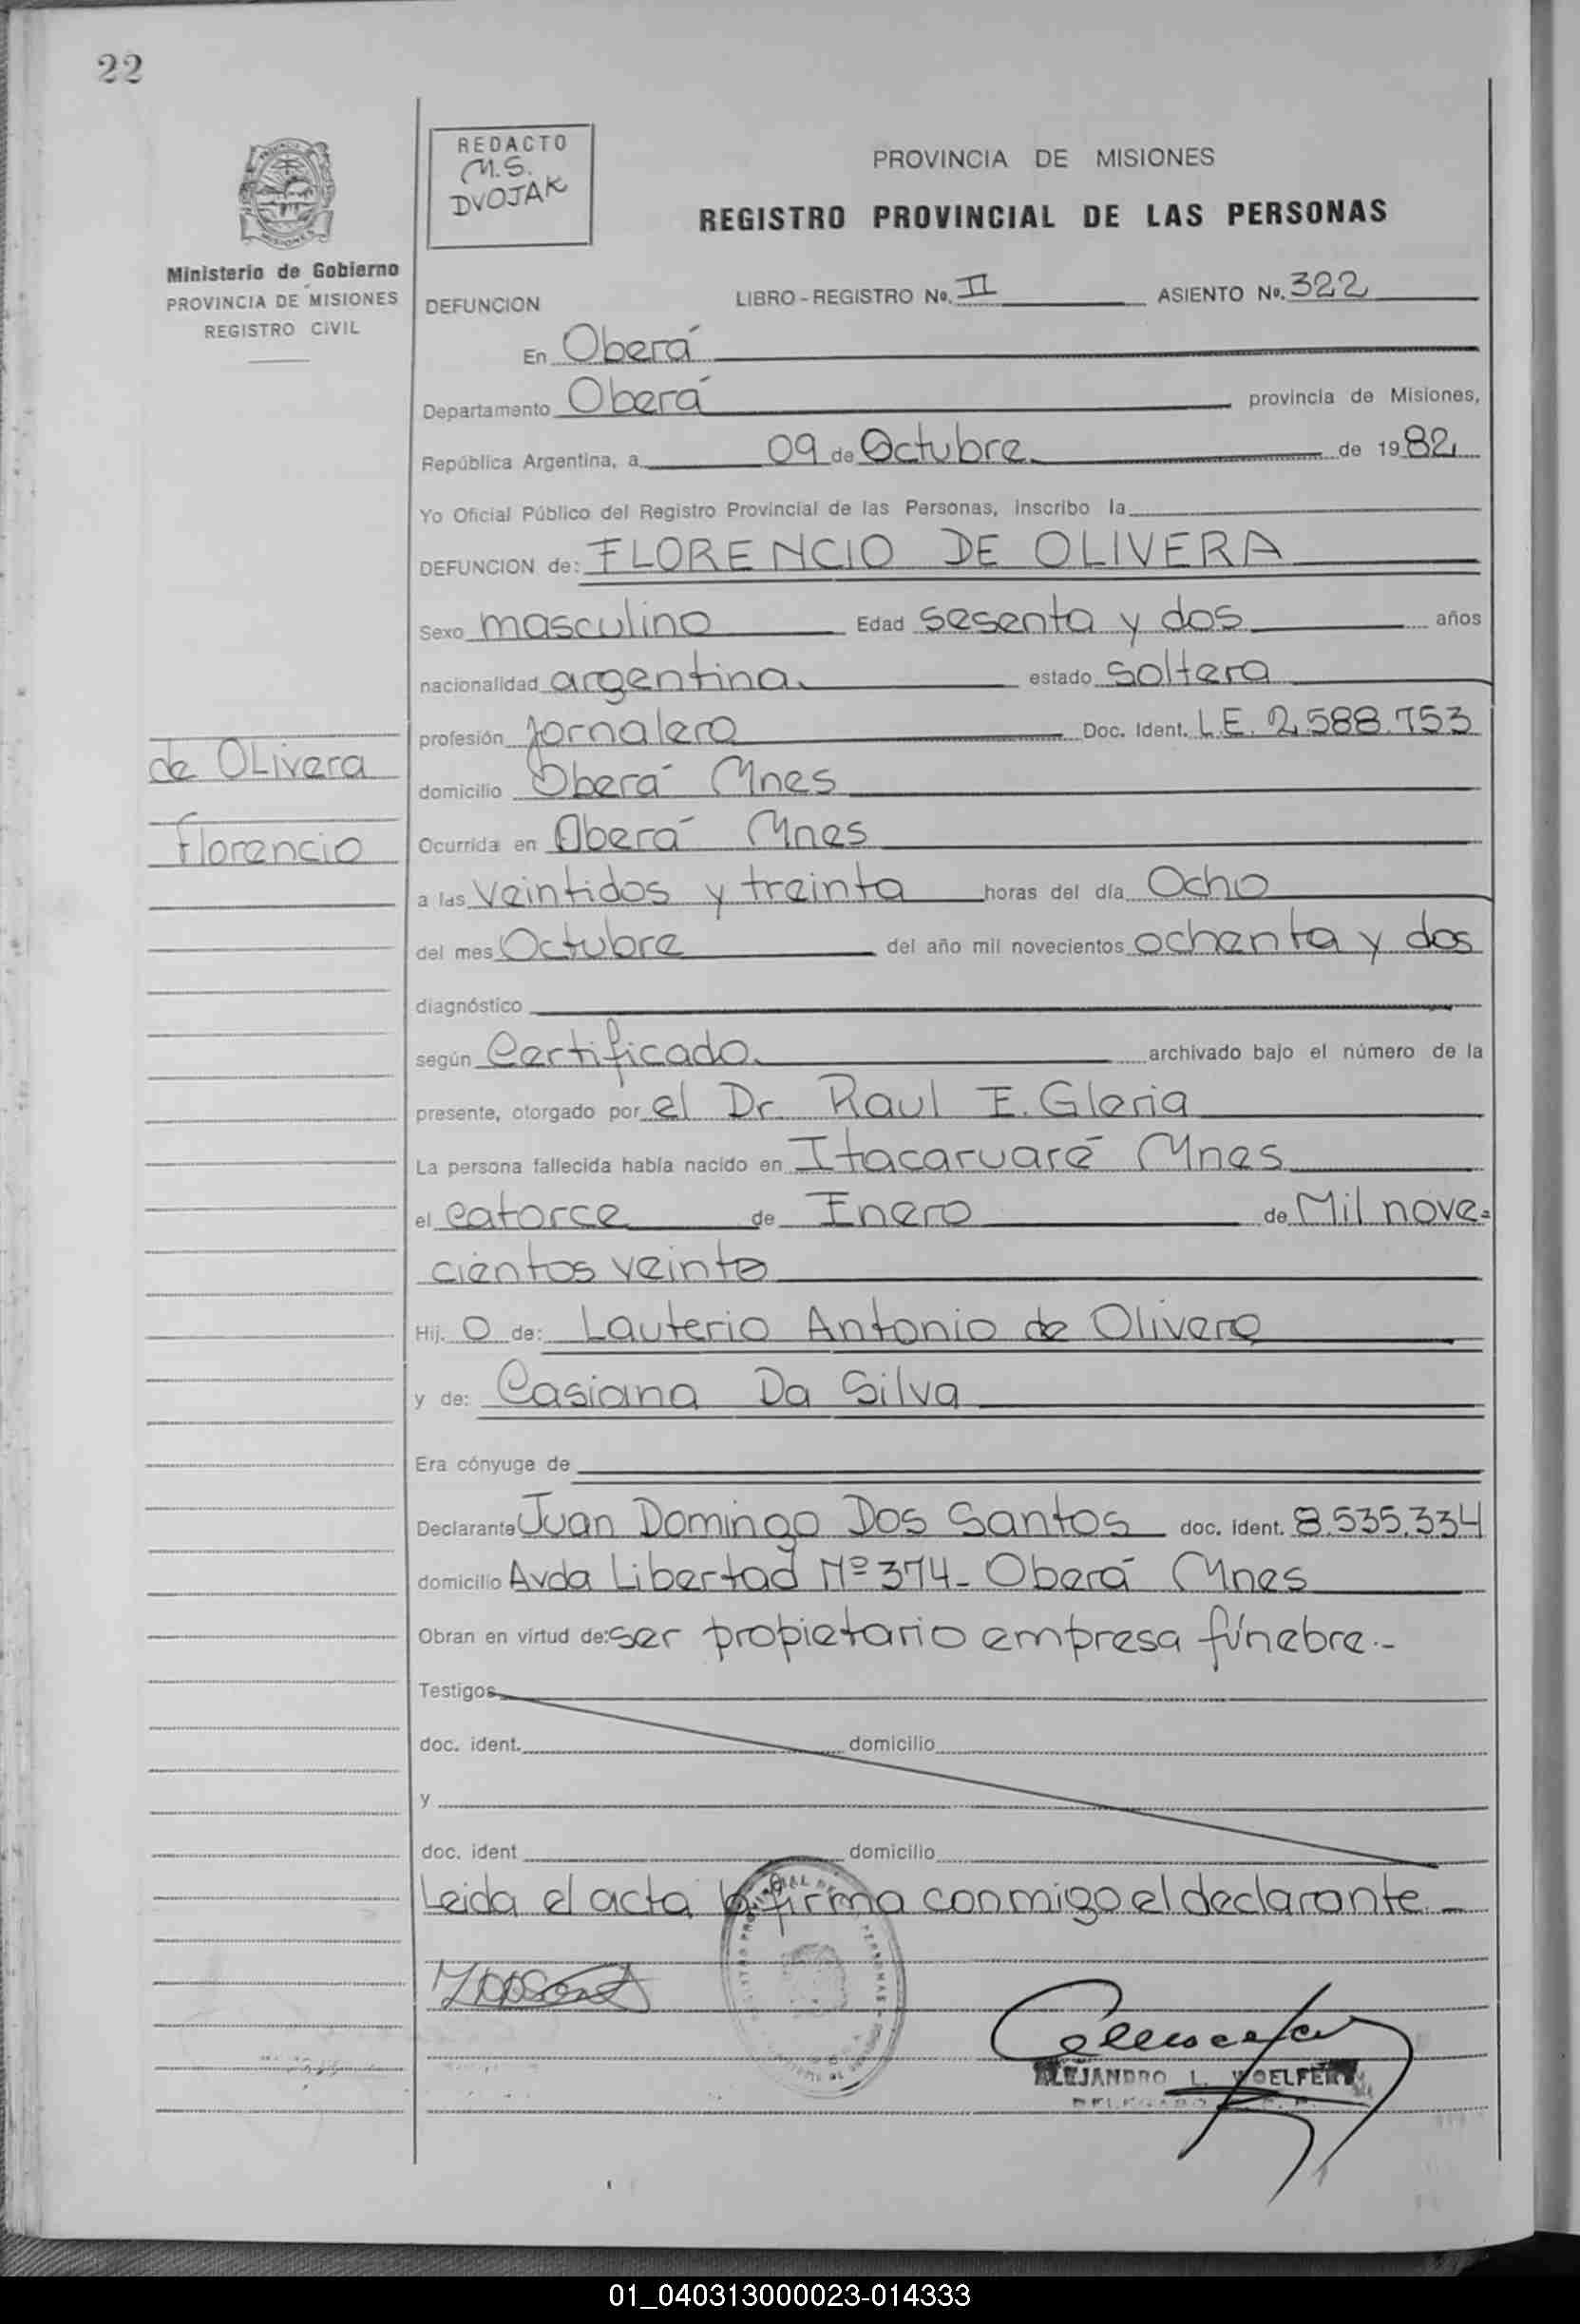 22
REDACTO
M.S.
DVOJAK
PROVINCIA DE MISIONES
REGISTRO PROVINCIAL DE LAS PERSONAS
Ministerio de Gobierno
PROVINCIA DE MISIONES
REGISTRO CIVIL
DEFUNCION LIBRO-REGISTRO No. II ASIENTO No. 322
En Oberá
Departamento Oberá provincia de Misiones,
República Argentina, a 09 de Octubre de 1982
Yo Oficial Público del Registro Provincial de las Personas, inscribo la
DEFUNCION de: FLORENCIO DE OLIVERA
Sexo masculino Edad sesenta y dos años
nacionalidad argentina estado soltero
profesión Jornalero Doc. Ident. L.E. 2.588.753
de Olivera
domicilio Oberá Mnes
Florencio
Ocurrida en Oberá Mnes
a las veintidos y treinta horas del día Ocho
del mes Octubre del año mil novecientos ochenta y dos
diagnóstico
según Certificado archivado bajo el número de la
presente, otorgado por el Dr. Raul E. Gleria
La persona fallecida había nacido en Itacaruaré Mnes
el catorce de Enero de Mil nove-
cientos veinte
Hij. o de: Lauterio Antonio de Olivera
y de: Casiana Da Silva
Era cónyuge de
Declarante Juan Domingo Dos Santos doc. ident. 8.535.334
domicilio Avda Libertad Nº 374- Oberá Mnes
Obran en virtud de: ser propietario empresa fúnebre.-
Testigos
doc. ident. domicilio
y
doc. ident domicilio
Leida el acta la firma conmigo el declarante.-
ALEJANDRO L. WOELFERT
01_040313000023-014333